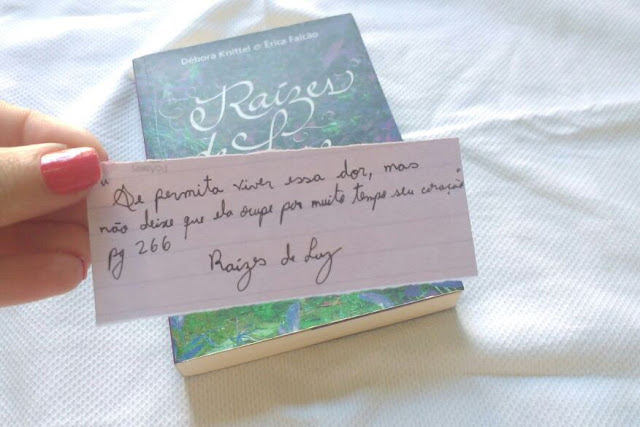 Débora Knittel e Erica Falcão
Raízes
de Luz
"Se permita viver essa dor, mas
não deixe que ela ocupe por muito tempo seu coração"
pg 266
Raízes de Luz